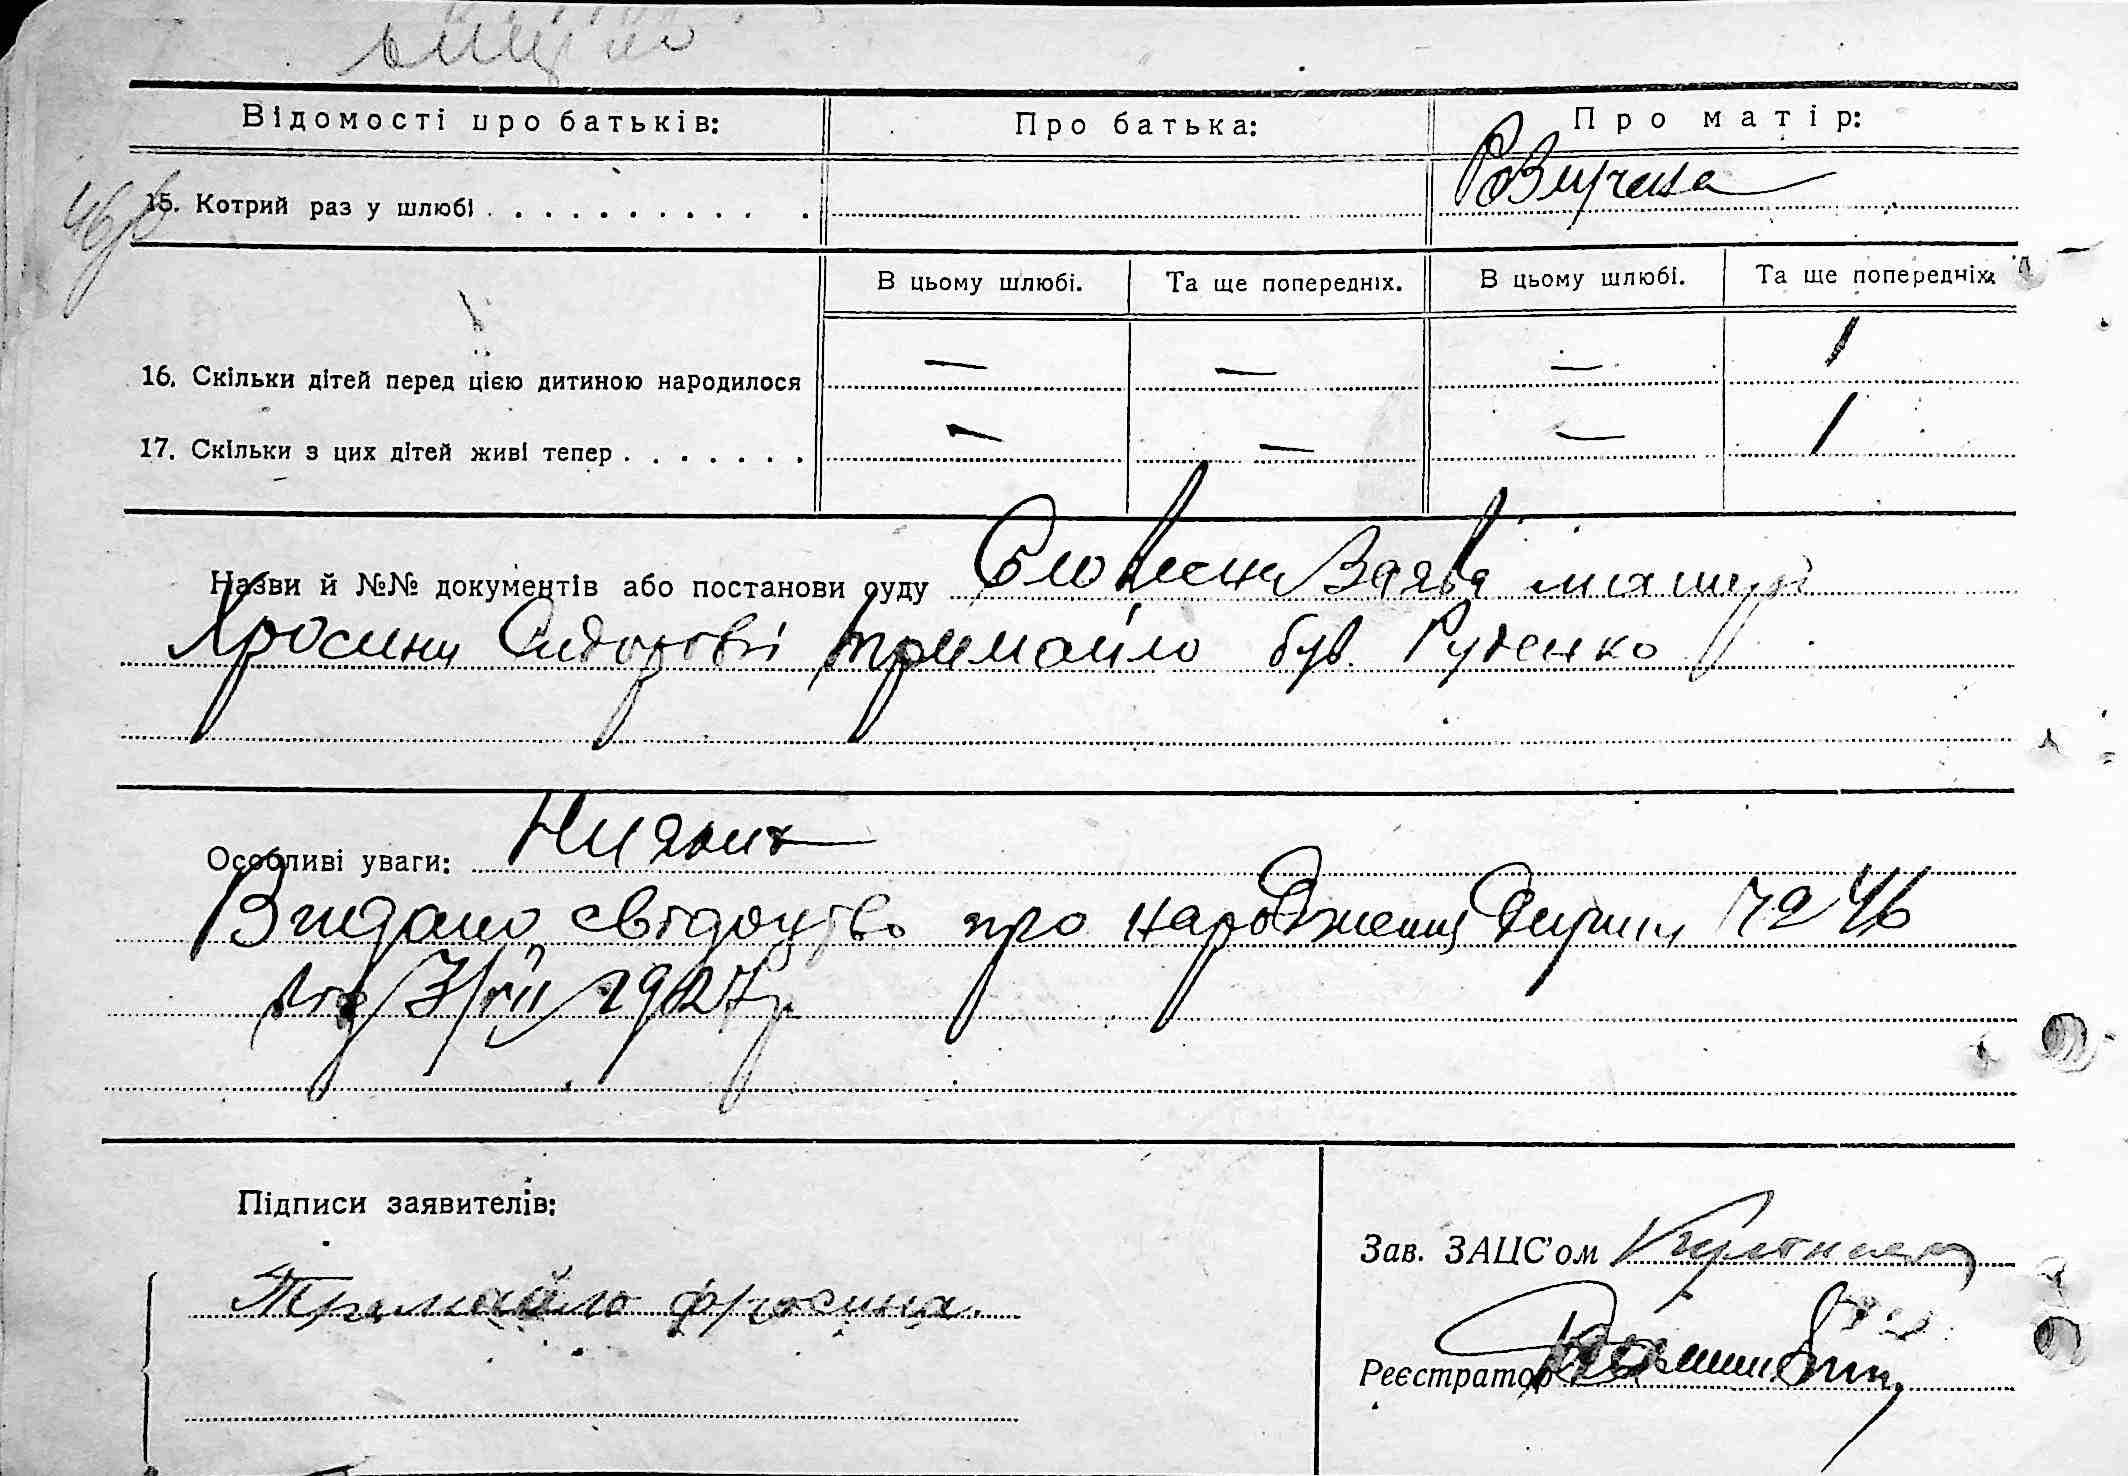 Відомості про батьків: Про батька: Про матір:
15. Котрий раз у шлюбі . . . . . . . . . . Розлучена
В цьому шлюбі. Та ще попередніх. В цьому шлюбі. Та ще попередніх.
16. Скільки дітей перед цією дитиною народилося — — — 1
17. Скільки з цих дітей живі тепер . . . . . . . — — — 1
Назви й №№ документів або постанови суду Словесна Заява матери
Хросини Сидорові Тримайло був. Руденко
Особливі уваги:
Видано свідоцтво про народження 46
від 7/VII 1927р.
Підписи заявителів:
Зав. ЗАЦС'ом
Тримайло Фросина.
Реєстратор